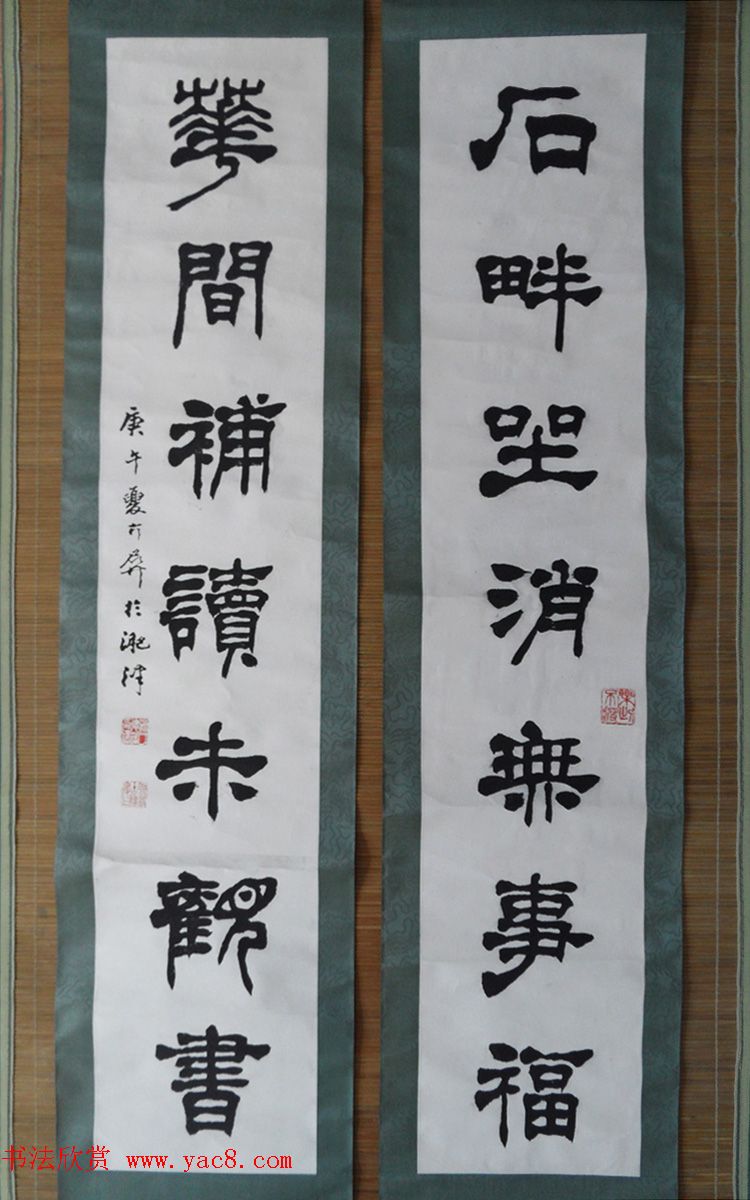 石畔坐消無事福
華間補讀未觀書
庚午夏六
书法欣赏 www.yac8.com